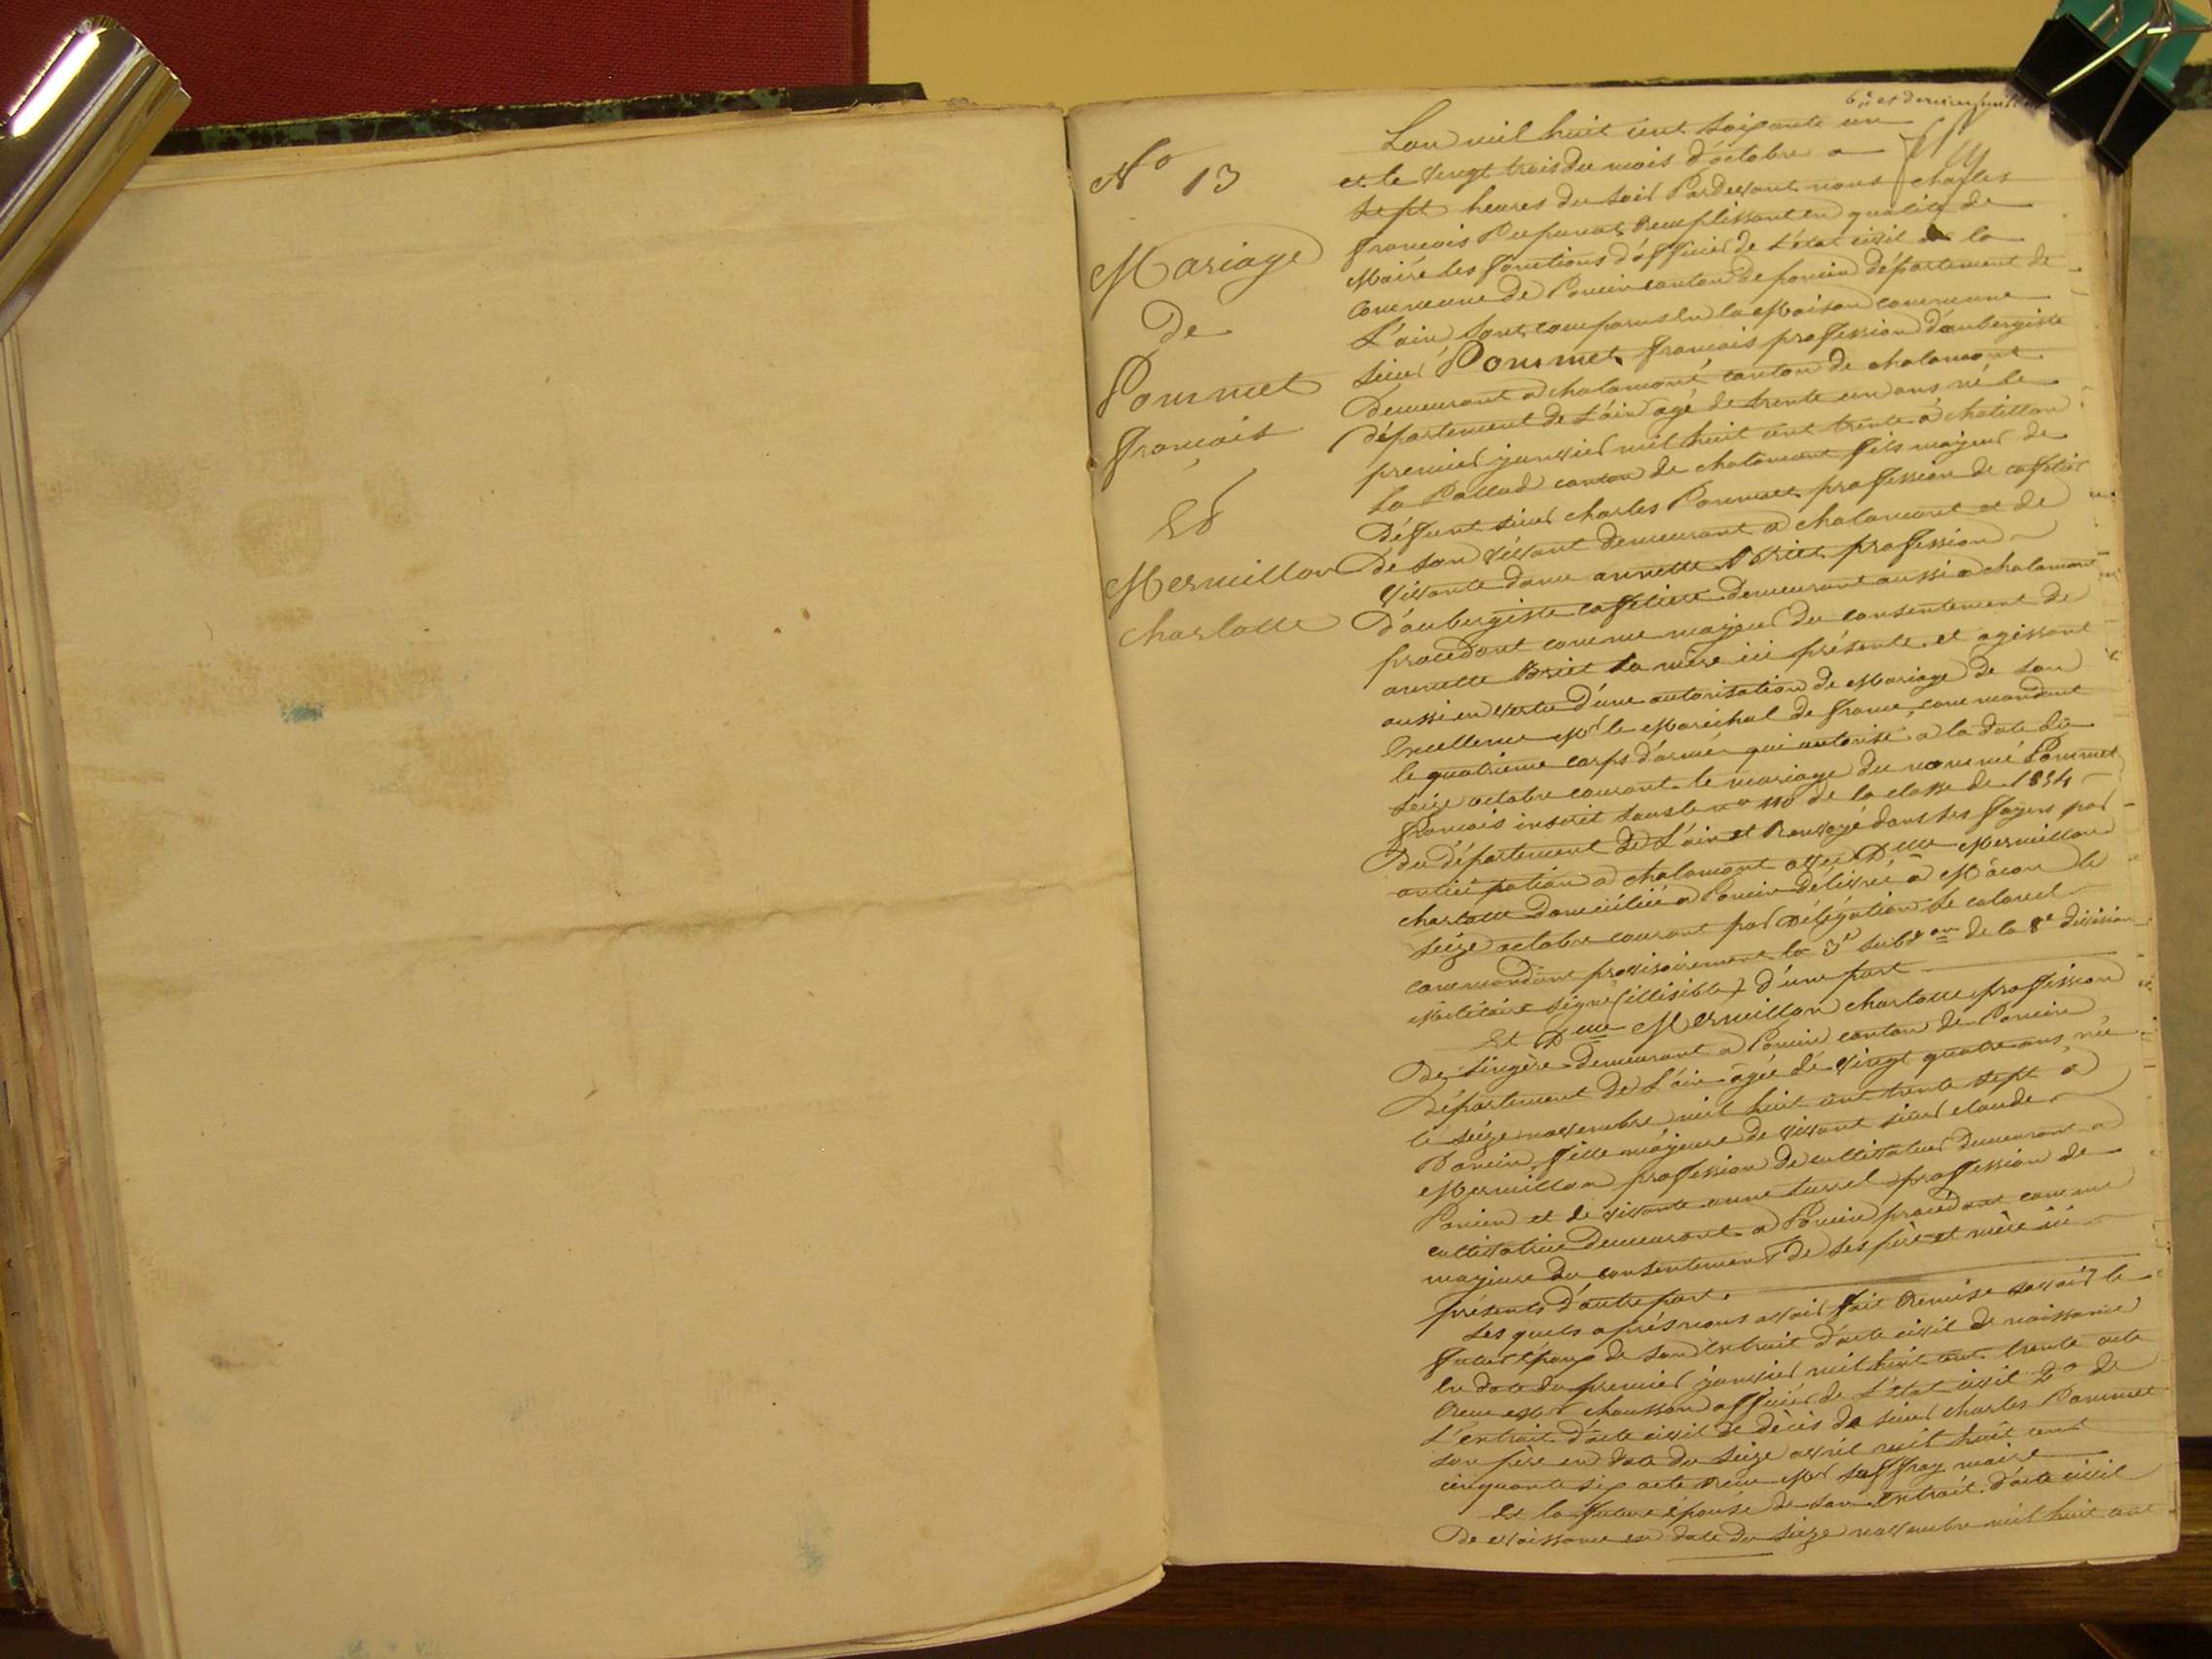 6e et dernier feuillet
No 13
Mariage
De
Pommet
françois
Et
Mermillon
charlotte
L'an mil huit cent soixante un
et le vingt trois du mois d'octobre a
sept heures du soir Pardevant nous charles
françois remplissant en qualité de
Maire les fonctions d'officier de L'état civil de la
commune de Poncin canton de poncin département de
L'ain sont comparus En la Maison commune
sieur Pommet françois profession d'aubergiste
Demeurant a chalamont canton de chalamont
département de L'ain agé de trente un ans né le
premier janvier mil huit cent trente à chatillon
la Pallud canton de chalamont fils majeur de
Défunt sieur charles Pommet profession de caffetier
De son vivant demeurant a chalamont et de
vivante dame annette Briet profession
D'aubergiste caffetiere demeurant aussi a chalamont
procédant comme majeur du consentement de
annette Briet sa mère ici présente et agissant
aussi en vertu d'une autorisation de Mariage de son
Excellence Mr le Maréchal de france, commandant
le quatrieme corps d'armée qui autorise a la date du
seize octobre courant le mariage du nommé Pommet
françois inscrit sous le no 110 de la classe de 1854
Du département de L'ain et Renvoyé dans ses foyers par
anticipation a chalamont avec Dlle Mermillon
charlotte Domiciliée a Poncin délivrée à Mâcon le
seize octobre courant par Délégation Le colonel
commandant provisoirement la 3e subdon de la 8e division
Militaire signé (illisible) d'une part
Et Dlle Mermillon charlotte profession
De lingère demeurant a Poncin canton de Poncin
Département de L'ain agée de vingt quatre ans, née
le seize novembre mil huit cent trente sept à
Poncin fille majeure de vivant sieur claude
Mermillon profession De cultivateur demeurant a
Poncin et de vivante anne profession de
cultivatrice Demeurant a Poncin procédant comme
majeure du consentement de ses père et mère ici
présents d'autre part.
Les quels après nous avoir fait Remise savoir le
futur époux de son Extrait d'acte civil de naissance
En date du premier janvier mil huit cent trente acte
Reçu Mr chausson officier de L'état civil 2o de
L'extrait d'acte civil de décès de sieur charles Pommet
son père en date du seize avril mil huit cent
cinquante six acte Reçu Mr maire
Et la future épouse de son Extrait d'acte civil
De Naissance en date du seize novembre mil huit cent